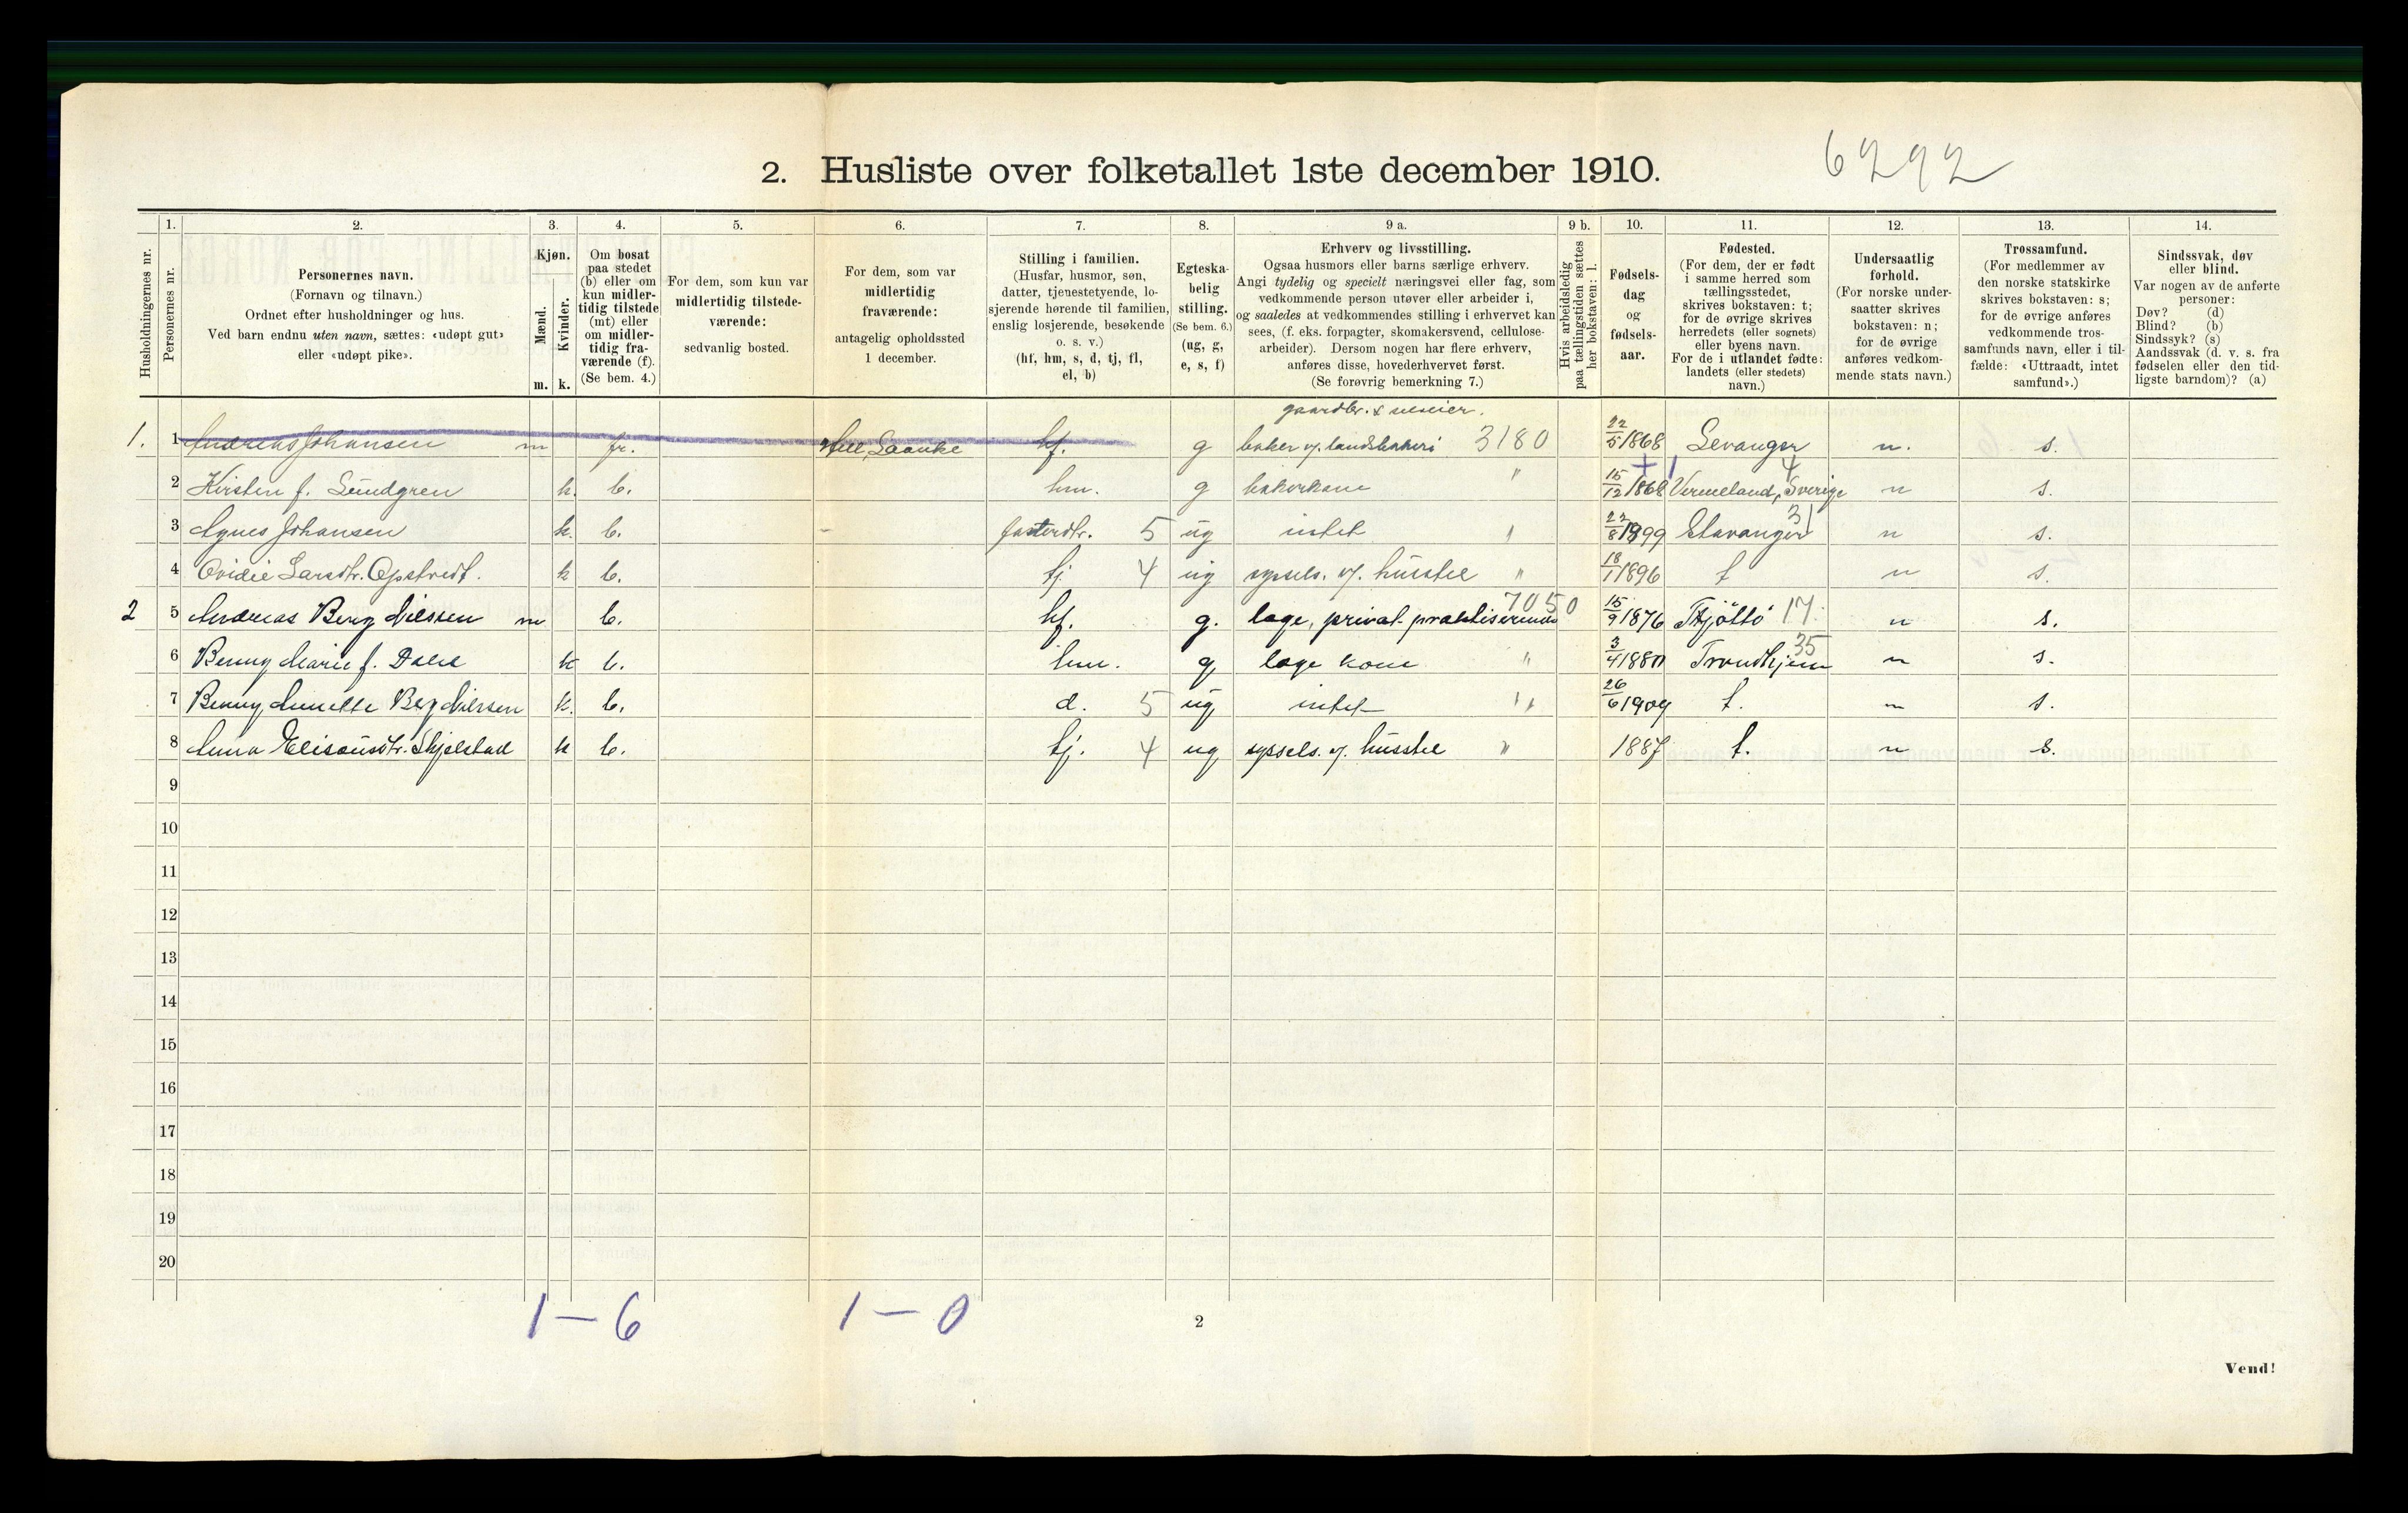 6292
2. Husliste over folketallet 1ste december 1910.
Husholdningernes nr.
1.
Personernes nr.
2.
Personernes navn.
(Fornavn og tilnavn.)
Ordnet efter husholdninger og hus.
Ved barn endnu uten navn, sættes: «udøpt gut»
eller «udøpt pike».
3.
Kjøn.
Mænd.
Kvinder.
m. k.
4.
Om bosat
paa stedet
(b) eller om
kun midler-
tidig tilstede
(mt) eller
om midler-
tidig fra-
værende (f).
(Se bem. 4.)
5.
For dem, som kun var
midlertidig tilstede-
værende:
sedvanlig bosted.
6.
For dem, som var
midlertidig
fraværende:
antagelig opholdssted
1 december.
7.
Stilling i familien.
(Husfar, husmor, søn,
datter, tjenestetyende, lo-
sjerende hørende til familien,
enslig losjerende, besøkende
o. s. v.)
(hf, hm, s, d, tj, fl,
el, b)
8.
Egteska-
belig
stilling.
(Se bem. 6.)
(ug, g,
e, s, f)
9 a.
Erhverv og livsstilling.
Ogsaa husmors eller barns særlige erhverv.
Angi tydelig og specielt næringsvei eller fag, som
vedkommende person utøver eller arbeider i,
og saaledes at vedkommendes stilling i erhvervet kan
sees, (f. eks. forpagter, skomakersvend, cellulose-
arbeider). Dersom nogen har flere erhverv,
anføres disse, hovederhvervet først.
(Se forøvrig bemerkning 7.)
9 b.
Hvis arbeidsledig
paa tællingstiden sættes
her bokstaven: l.
10.
Fødsels-
dag
og
fødsels-
aar.
11.
Fødested.
(For dem, der er født
i samme herred som
tællingsstedet,
skrives bokstaven: t;
for de øvrige skrives
herredets (eller sognets)
eller byens navn.
For de i utlandet fødte:
landets (eller stedets)
navn.)
12.
Undersaatlig
forhold.
(For norske under-
saatter skrives
bokstaven: n;
for de øvrige
anføres vedkom-
mende stats navn.)
13.
Trossamfund.
(For medlemmer av
den norske statskirke
skrives bokstaven: s;
for de øvrige anføres
vedkommende tros-
samfunds navn, eller i til-
fælde: «Uttraadt, intet
samfund».)
14.
Sindssvak, døv
eller blind.
Var nogen av de anførte
personer:
Døv? (d)
Blind? (b)
Sindssyk? (s)
Aandssvak (d. v. s. fra
fødselen eller den tid-
ligste barndom)? (a)
1. 1 Andreas Johansen m fr. Hell, Laanke hf. g baker v. landsbakeri 3180 22/5 1868 Levanger n. s.
2 Kirsten f. Lundgren k. b. hm. g bakerkone " 15/12 1868 Vermeland, Sverige 4 n s.
3 Agnes Johansen k. b. fosterdtr. 5 ug intet " 22/8 1899 Stavanger 31 n s.
4 Ovidie Larsdtr. Opstvedt. k b. tj 4 ug syssels. v. husstel " 18/1 1896 t n s.
2 5 Andreas Berg Nilssen m b. hf. g. læge, privat praktiserende 7050 15/9 1876 Tjøttø 17 n s.
6 Benny Marie f. Dahl k b. hm. g. læge kone " 3/4 1880 Trondhjem 35 n s.
7 Benny Annette Berg Nilssen k. b. d. 5 ug intet " 26/6 1909 t. n s.
8 Anna Elisæusdtr. Skjelstad k b. tj. 4 ug syssels. v. husstel " 1887 t. n s.
9
10
11
12
13
14
15
16
17
18
19
20
1 – 6 1 – 0
2
Vend!